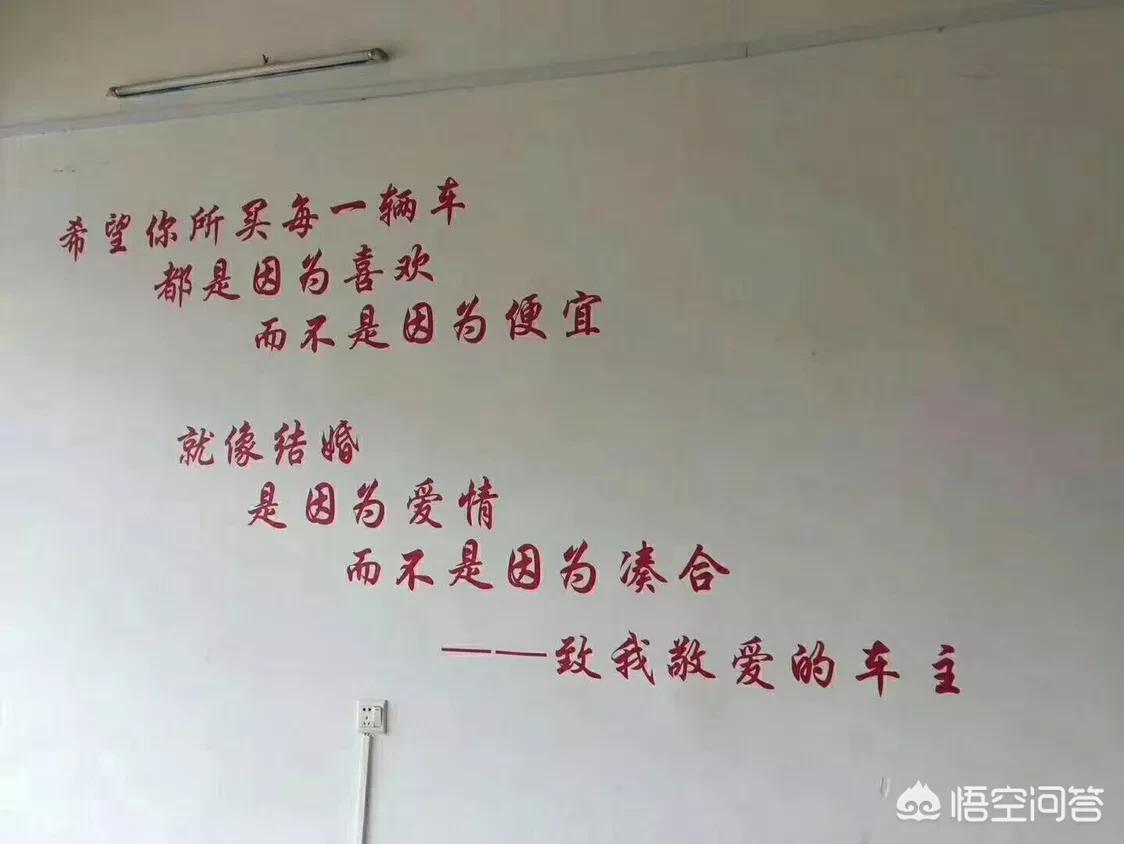 希望你所买每一辆车
都是因为喜欢
而不是因为便宜
就像结婚
是因为爱情
而不是因为凑合
——致我敬爱的车主
悟空问答